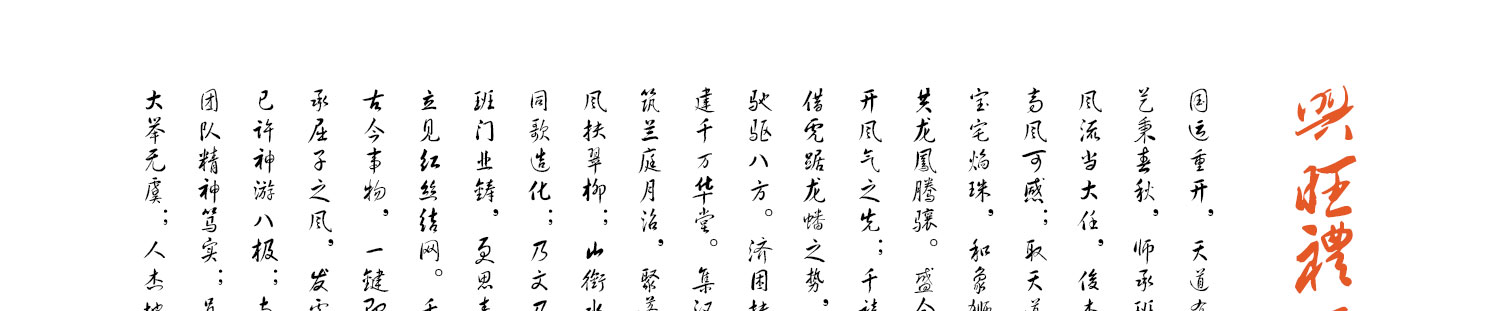 興旺禮
国运重开，天道
艺秉春秋，师承班
风流当大任，俊杰
高风可感；取天道
宝宅焰珠，和象狮
共龙鳳騰骧。盛会
开风气之先；千禧
借虎踞龙蟠之势，
驰驱八方。济困扶
建千万华堂。集汉
筑兰庭月沼，聚
风扶翠柳；山衔水
同歌造化；乃文乃
班门业铸，更思
立见红丝结网。
古今事物，一键即
承屈子之风，发
已许神游八极；
团队精神笃实；
大举无虞；人杰地